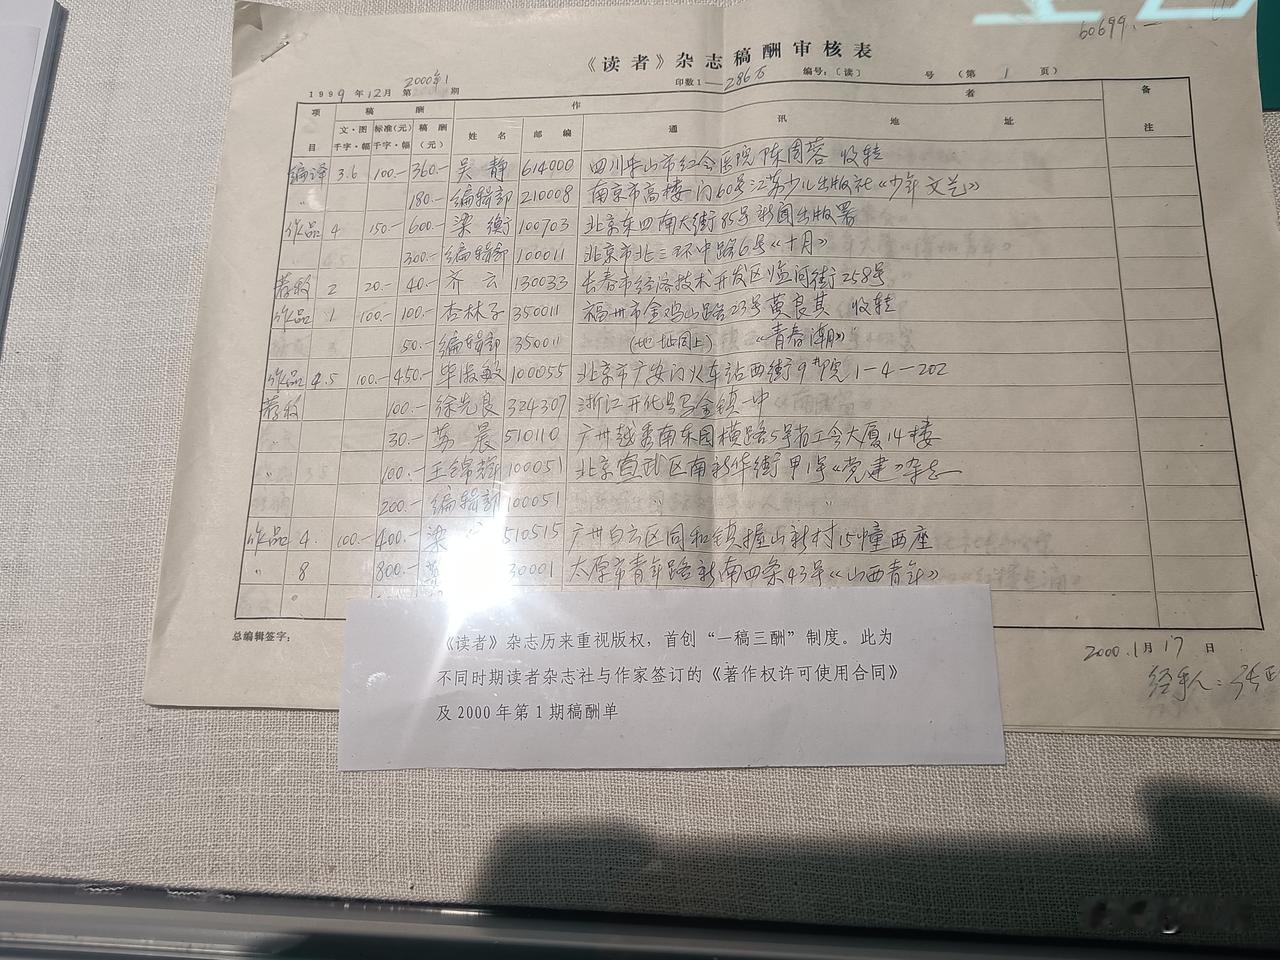 60699.—
《读者》杂志稿酬审核表
1999年12月 第2000年1期 印数1—286万 编号:〔读〕 号 (第 1 页)
项目 稿酬 作者 备注
文·图 千字·幅 标准(元) 千字·幅 稿酬(元) 姓名 邮编 通讯地址
编译 3.6 100.— 360.— 吴静 614000 四川乐山市红会医院陈周蓉 收转
〃 180.— 编辑部 210008 南京市高楼门60号江苏少儿出版社《少年文艺》
作品 4 150.— 600.— 梁衡 100703 北京东四南大街85号新闻出版署
〃 300.— 编辑部 100011 北京市北三环中路6号《十月》
荐稿 2 20.— 40.— 齐云 130033 长春市经济技术开发区临河街258号
作品 1 100.— 100.— 杏林子 350011 福州市金鸡山路23号黄良其 收转
50.— 编辑部 350011 (地址同上) 《青春潮》
作品 4.5 100.— 450.— 毕淑敏 100055 北京市广安门火车站西街9#院1-4-202
荐稿 100.— 徐先良 324307 浙江开化县马金镇一中
〃 30.— 晨 510110 广州越秀南东园横路5号省工会大厦14楼
〃 100.— 王锦 100051 北京宣武区南新华街甲1号《党建》杂志
200.— 编辑部 100051 〃
作品 4. 100.— 400.— 梁 510515 广州白云区同和镇握山新村15幢西座
〃 8 800.— 30001 太原市青年路新南四条43号《山西青年》
总编辑签字:
2000.1月17日
经手人:张
《读者》杂志历来重视版权，首创“一稿三酬”制度。此为
不同时期读者杂志社与作家签订的《著作权许可使用合同》
及2000年第1期稿酬单